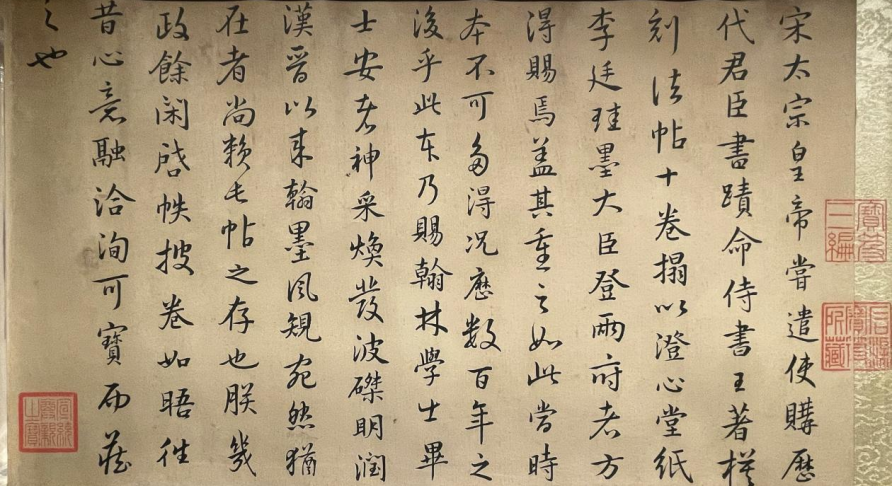 寶笈三編
石渠寶笈所藏
宋太宗皇帝嘗遣使購歷
代君臣書蹟命侍書王著模
刻法帖十卷搨以澄心堂紙
李廷珪墨大臣登兩府者方
得賜焉蓋其重之如此當時
本不可多得況歷數百年之
後乎此本乃賜翰林學士畢
士安者神采煥發波磔明潤
漢晉以來翰墨風規宛然猶
在者尚賴此帖之存也朕幾
政餘閑啓帙披卷如晤往
昔心意融洽洵可寶而藏
之也